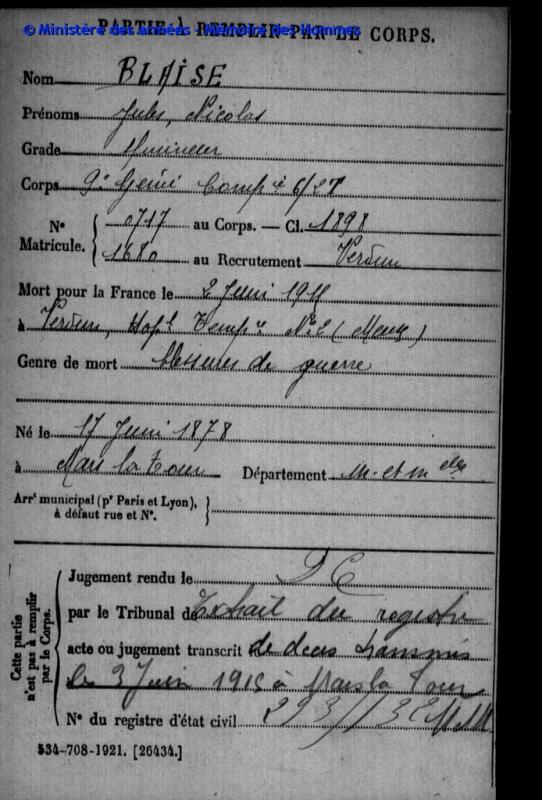 © Ministère des armées - Mémoire des Hommes
PARTIE À REMPLIR PAR LE CORPS.
Nom BLAISE
Prénoms Jules, Nicolas
Grade
Corps 9e Génie Compie 6/27
N° Matricule. { 0717 au Corps. — Cl. 1898
1680 au Recrutement Verdun
Mort pour la France le 2 Juin 1915
à Verdun, Hopl Tempre N°2 (Meuse)
Genre de mort blessures de guerre
Né le 17 Juin 1878
à Mars la Tour Département M. et Melle
Arrt municipal (pr Paris et Lyon), }
à défaut rue et N°.
Cette partie n'est pas à remplir par le Corps.
Jugement rendu le
par le Tribunal de Extrait du registre
acte ou jugement transcrit de deces transmis
le 3 Juin 1915 à Mars la Tour
N° du registre d'état civil
534-708-1921. [26434.]